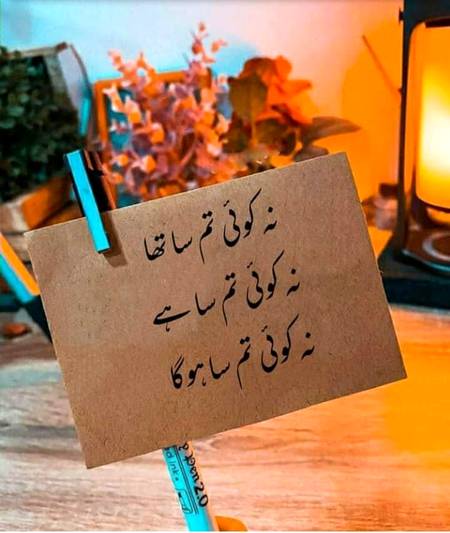 نہ کوئی تم سا تھا
نہ کوئی تم سا ہے
نہ کوئی تم سا ہوگا